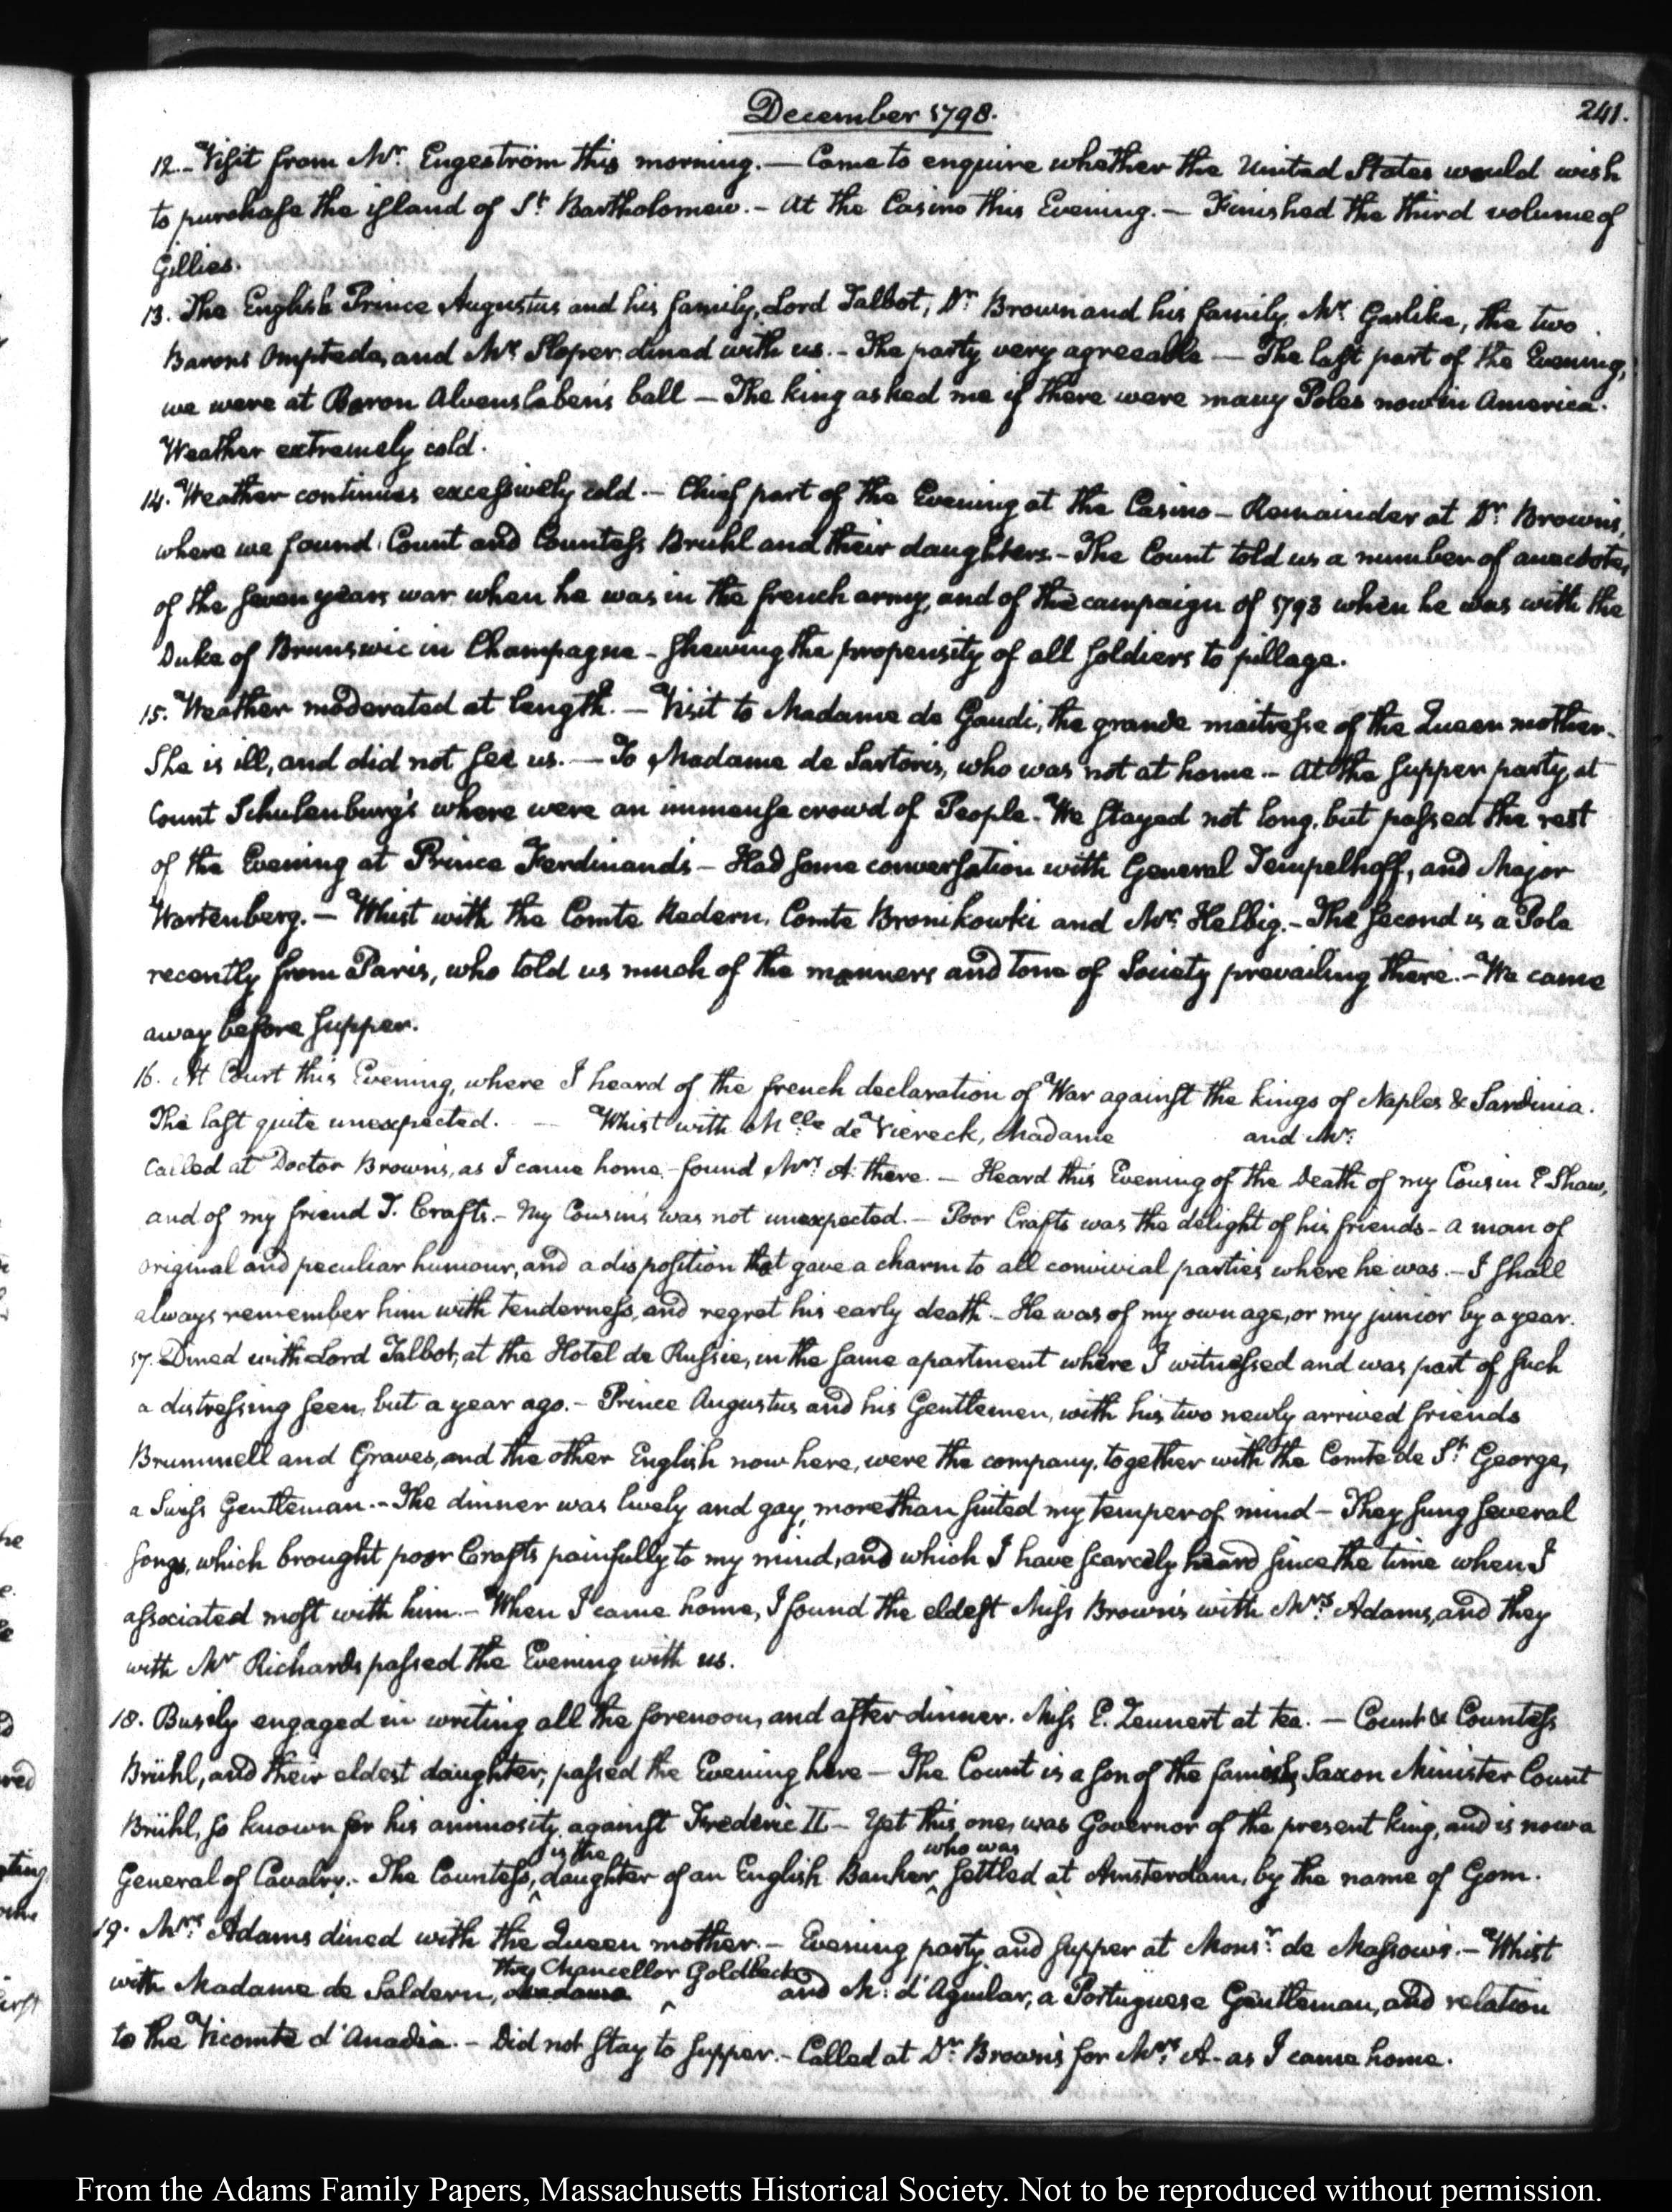 December 1798.
241.
12.- Visit from Mr. Engeström this morning. — Came to enquire whether the United States would wish
to purchase the island of St. Bartholomew. - At the Casino this Evening. — Finished the third volume of
Gillies.
13. The English Prince Augustus and his family, Lord Talbot, Dr. Brown and his family, Mr. Garlike, the two
Barons Ompteda, and Mr. Sloper dined with us. - The party very agreeable — The last part of the Evening,
we were at Baron Alvensleben's ball — The king asked me if there were many Poles now in America.
Weather extremely cold.
14. Weather continues excessively cold. — Chief part of the Evening at the Casino — Remainder at Dr. Brown's,
where we found Count and Countess Bruhl and their daughters. - The Count told us a number of anecdotes,
of the seven years war when he was in the french army, and of the campaign of 1793 when he was with the
Duke of Brunswic in Champagne - shewing the propensity of all soldiers to pillage.
15. Weather moderated at length. — Visit to Madame de Gaudi, the grande maitresse of the Queen mother.
She is ill, and did not see us. — To Madame de Sartoris, who was not at home. - At the supper party at
Count Schulenburg's where were an immense crowd of People. We stayed not long, but passed the rest
of the Evening at Prince Ferdinand's — Had some conversation with General Tempelhoff, and Major
Wartenberg. — Whist with the Comte Redern, Comte Bronikowki and Mr. Helbig. - The second is a Pole
recently from Paris, who told us much of the manners and tone of Society prevailing there. - We came
away before supper.
16. At Court this Evening, where I heard of the french declaration of War against the kings of Naples & Sardinia.
The last quite unexpected. — Whist with Mlle de Viereck, Madame and Mr.
Called at Doctor Brown's, as I came home - found Mrs. A. there. — Heard this Evening of the death of my Cousin E. Shaw,
and of my friend T. Crafts. - My Cousin's was not unexpected. — Poor Crafts was the delight of his friends - a man of
original and peculiar humour, and a disposition that gave a charm to all convivial parties where he was. — I shall
always remember him with tenderness, and regret his early death. - He was of my own age, or my junior by a year.
17. Dined with Lord Talbot, at the Hotel de Russie, in the same apartment where I witnessed and was part of such
a distressing seen, but a year ago. - Prince Augustus and his Gentlemen, with his two newly arrived friends
Brummell and Graves, and the other English now here, were the company, together with the Comte de St. George,
a Swiss Gentleman. - The dinner was lively and gay, more than suited my temper of mind - They sung several
songs, which brought poor Crafts painfully to my mind, and which I have scarcely heard since the time when I
associated most with him. - When I came home, I found the eldest Miss Brown's with Mrs. Adams, and they
with Mr Richards passed the Evening with us.
18. Busily engaged in writing all the forenoon, and after dinner. Miss E. Zeunert at tea. — Count & Countess
Brühl, and their eldest daughter, passed the Evening here — The Count is a son of the famous Saxon Minister Count
Brühl, so known for his animosity against Frederic II — Yet this one, was Governor of the present king, and is now a
General of Cavalry. - The Countess, is the daughter of an English Banker, who was settled at Amsterdam, by the name of Gom.
19. Mrs. Adams dined with the Queen mother. - Evening party and supper at Monsr. de Massow's. - Whist
with Madame de Saldern, the Chancellor Goldbeck and M. d'Aguilar, a Portuguese Gentleman, and relation
to the Vicomte d'Anadia. - Did not stay to supper. - Called at Dr. Brown's for Mrs. A. as I came home.
From the Adams Family Papers, Massachusetts Historical Society. Not to be reproduced without permission.